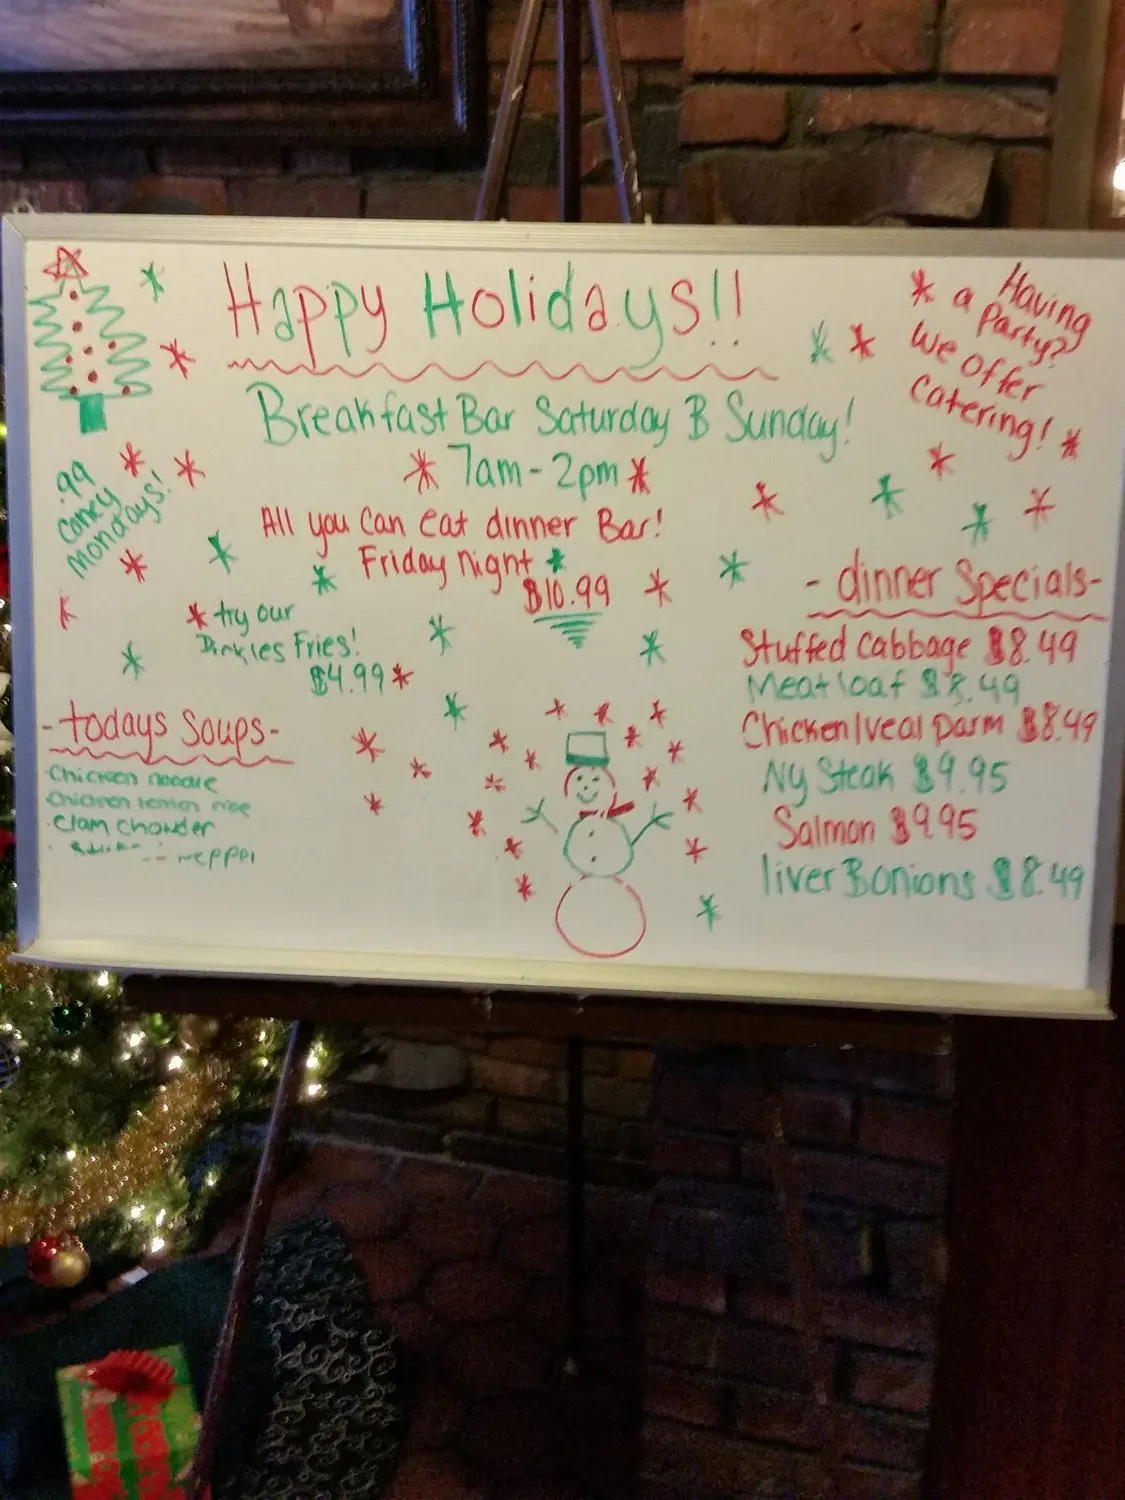 Happy Holidays!!
Breakfast Bar Saturday & Sunday!
7am-2pm
All you can eat dinner Bar!
Friday night
$10.99
Having
a Party?
We offer
Catering!
.99
Coney
Mondays!
try our
Pickles Fries!
$4.99
-todays Soups-
Chicken noodle
Chicken lemon rice
Clam Chowder
-dinner Specials-
Stuffed Cabbage $8.49
Meatloaf $8.49
Chicken/veal parm $8.49
Ny Steak $9.95
Salmon $9.95
liver & onions $8.49